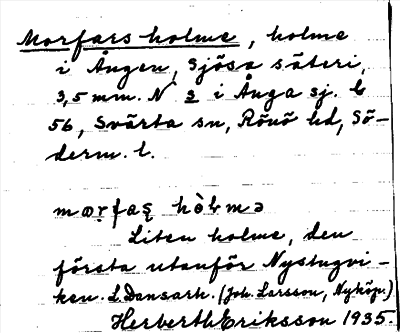 Morfars holme, holme
i Ången, Sjösa säteri,
3,5 mm. N s i Ånga sj. b
56, Svärta sn, Rönö hd, Sö-
derm. l.
mɷrfaʂ hòlmə
Liten holme, den
första utanför Nystugvi-
ken. L. Dansark. (Joh. Larsson, Nyköp.)
Herberth Eriksson 1935.